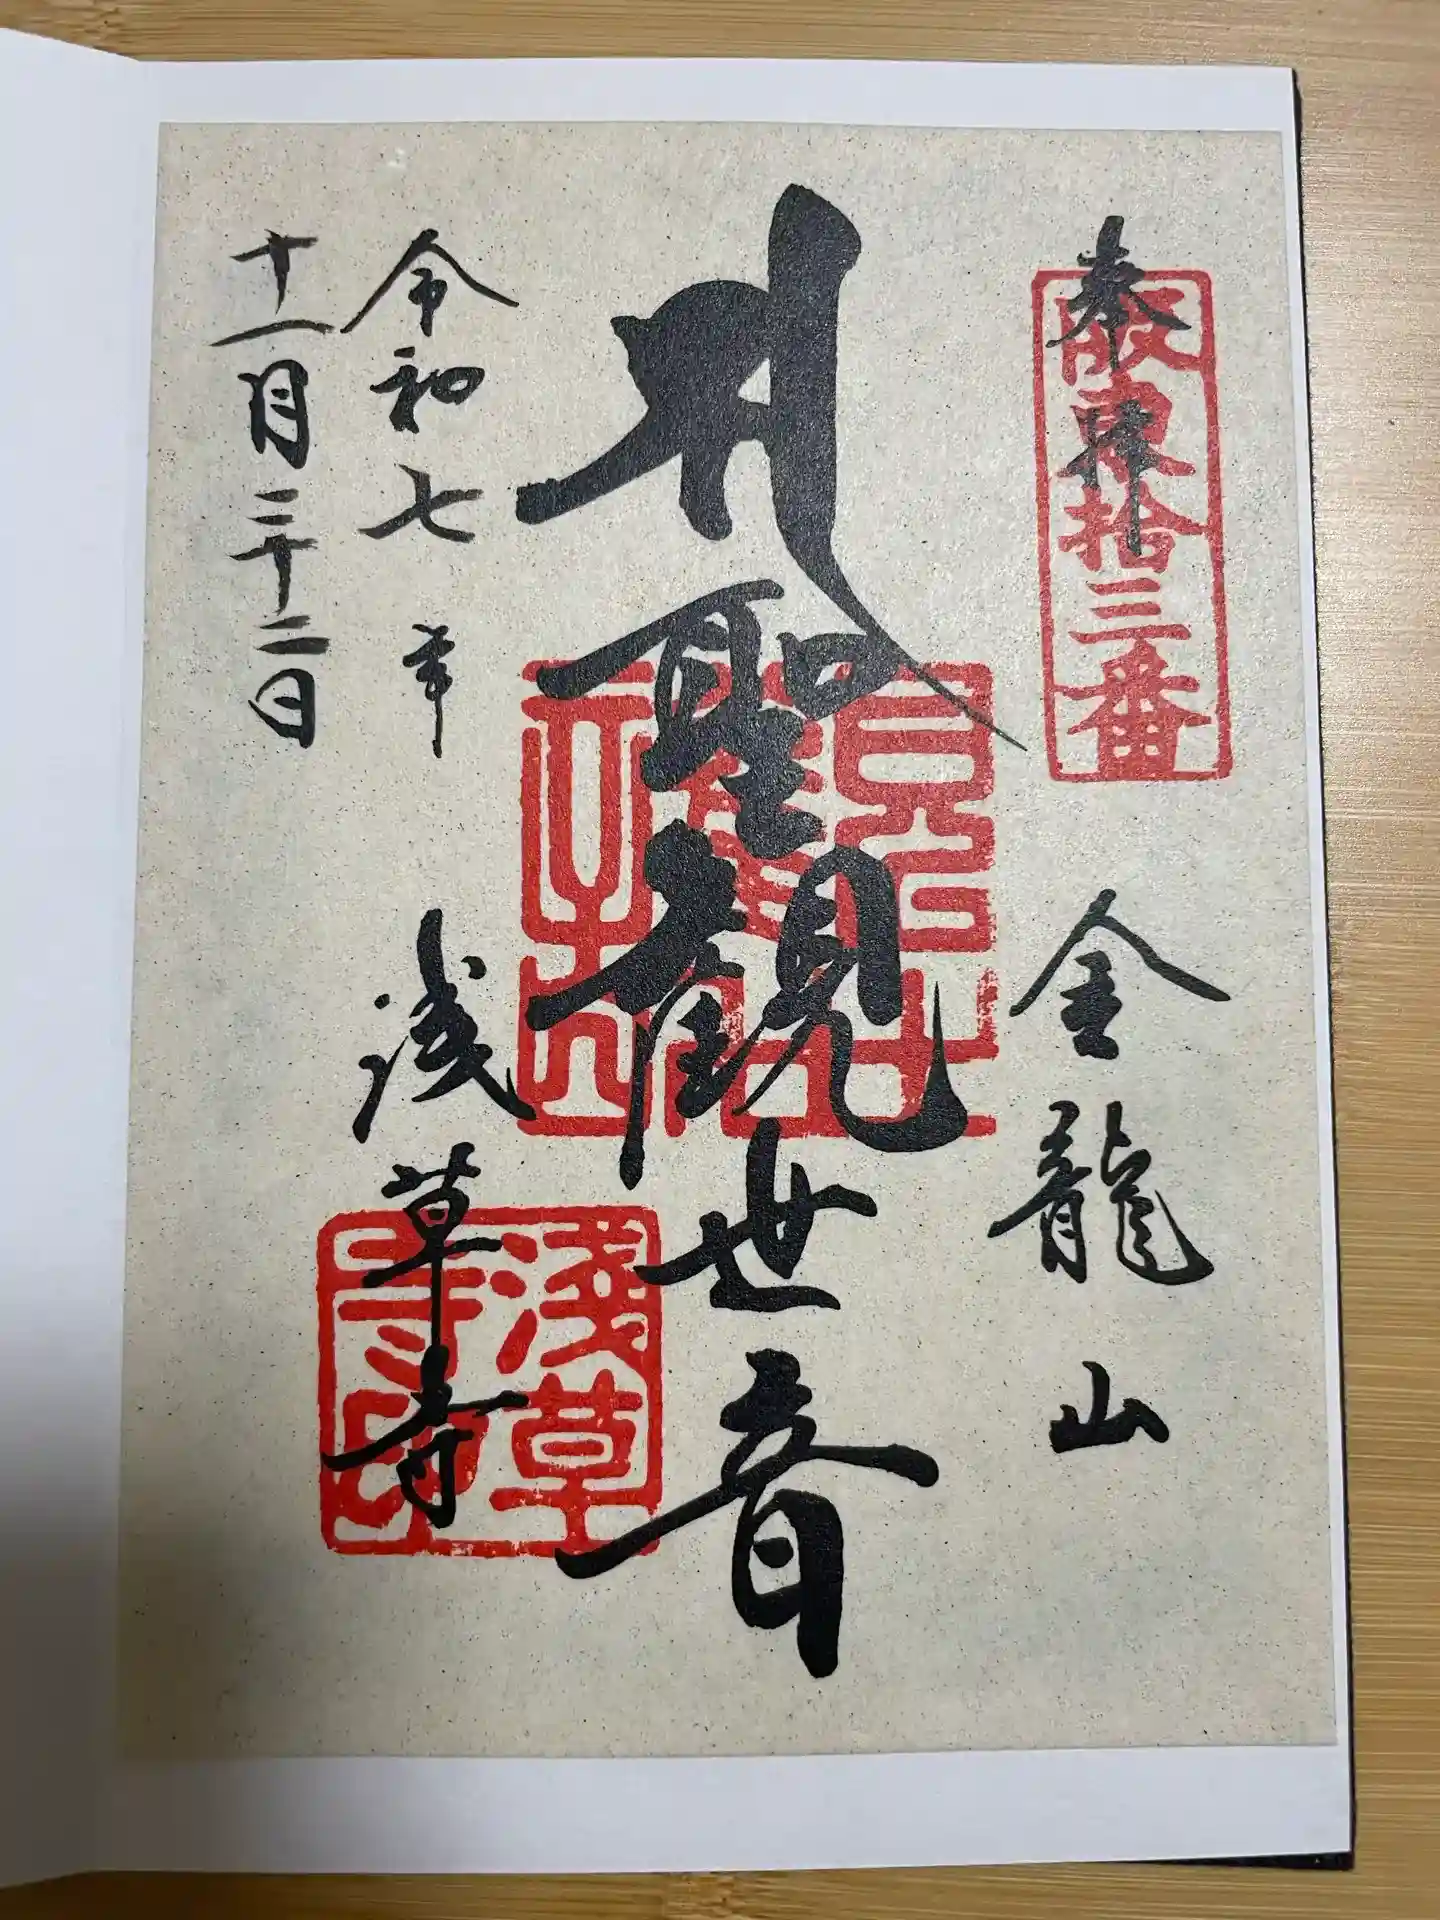 奉拝
阪東拾三番
金龍山
聖観世音
浅草寺
淺草
寺印
令和七年
十一月二十二日